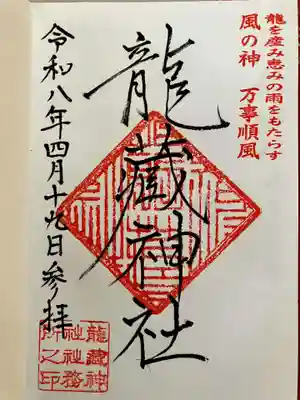 龍を産み恵みの雨をもたらす
風の神 万事順風
龍蔵神社
令和八年四月十九日参拝
龍蔵神
社社務
所之印